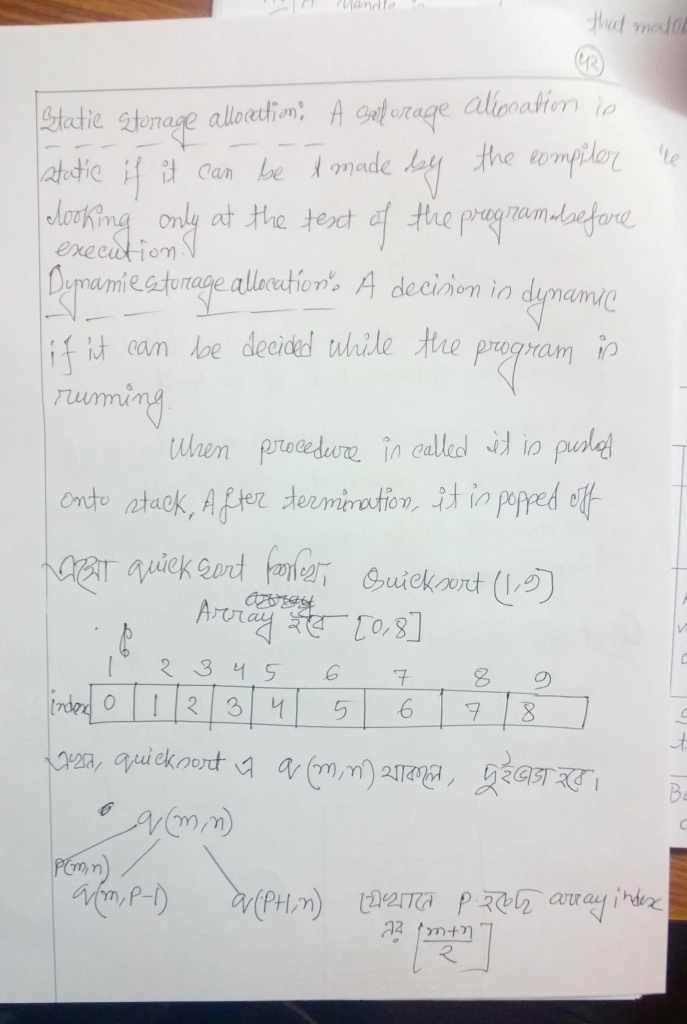 Handle
that match
43
Static storage allocation: A storage allocation is
static if it can be made by the compiler
looking only at the text of the program before
execution.
Dynamic storage allocation: A decision is dynamic
if it can be decided while the program is
running.
When procedure is called it is pushed
onto stack, After termination, it is popped off
এখো quick sort শিখি, Quicksort (1,9)
Array হবে [0,8]
1 2 3 4 5 6 7 8 9
index 0 1 2 3 4 5 6 7 8
এখন, quicksort এ q(m,n) থাকলে, দুইভাগ হবে।
q(m,n)
P(m,n)
q(m,P-1) q(P+1,n) যেখানে P হচ্ছে array index
এর [m+n/2]